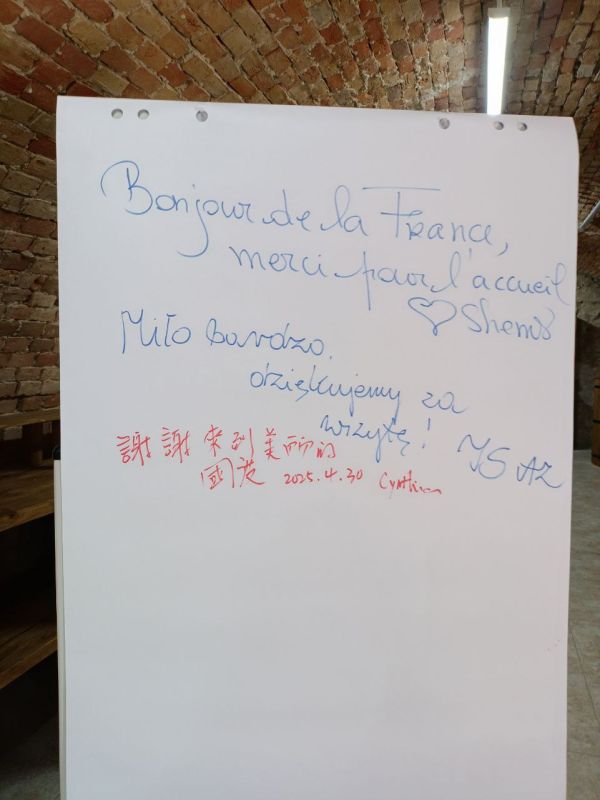 Bonjour de la France,
merci pour l'accueil
♡ Shems
Miło bardzo,
dziękujemy za
wizytę! JS AZ
謝謝來到美丽的
國 2025.4.30 Cynthia